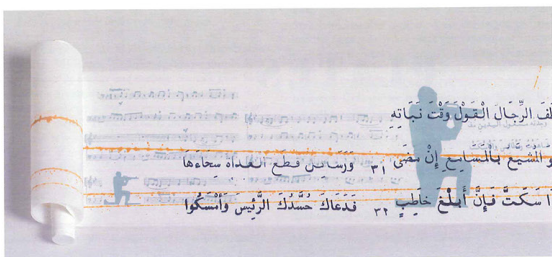 الرِّجَالُ الْقَوْلَ وَقْتَ نَبَاتِهِ
الْمُشَيَّعُ بِالْمَسَامِعِ إِنْ مَضَى ٣١ وَرَسَائِلٍ قَطَعَ الْعُدَاةُ سِحَاءَهَا
سَكَتَّ فَإِنَّ أَبْلَغَ خَاطِبٍ ٣٢ فَدَعَاكَ حُسَّدُكَ الرَّئِيسَ وَأَمْسَكُوا